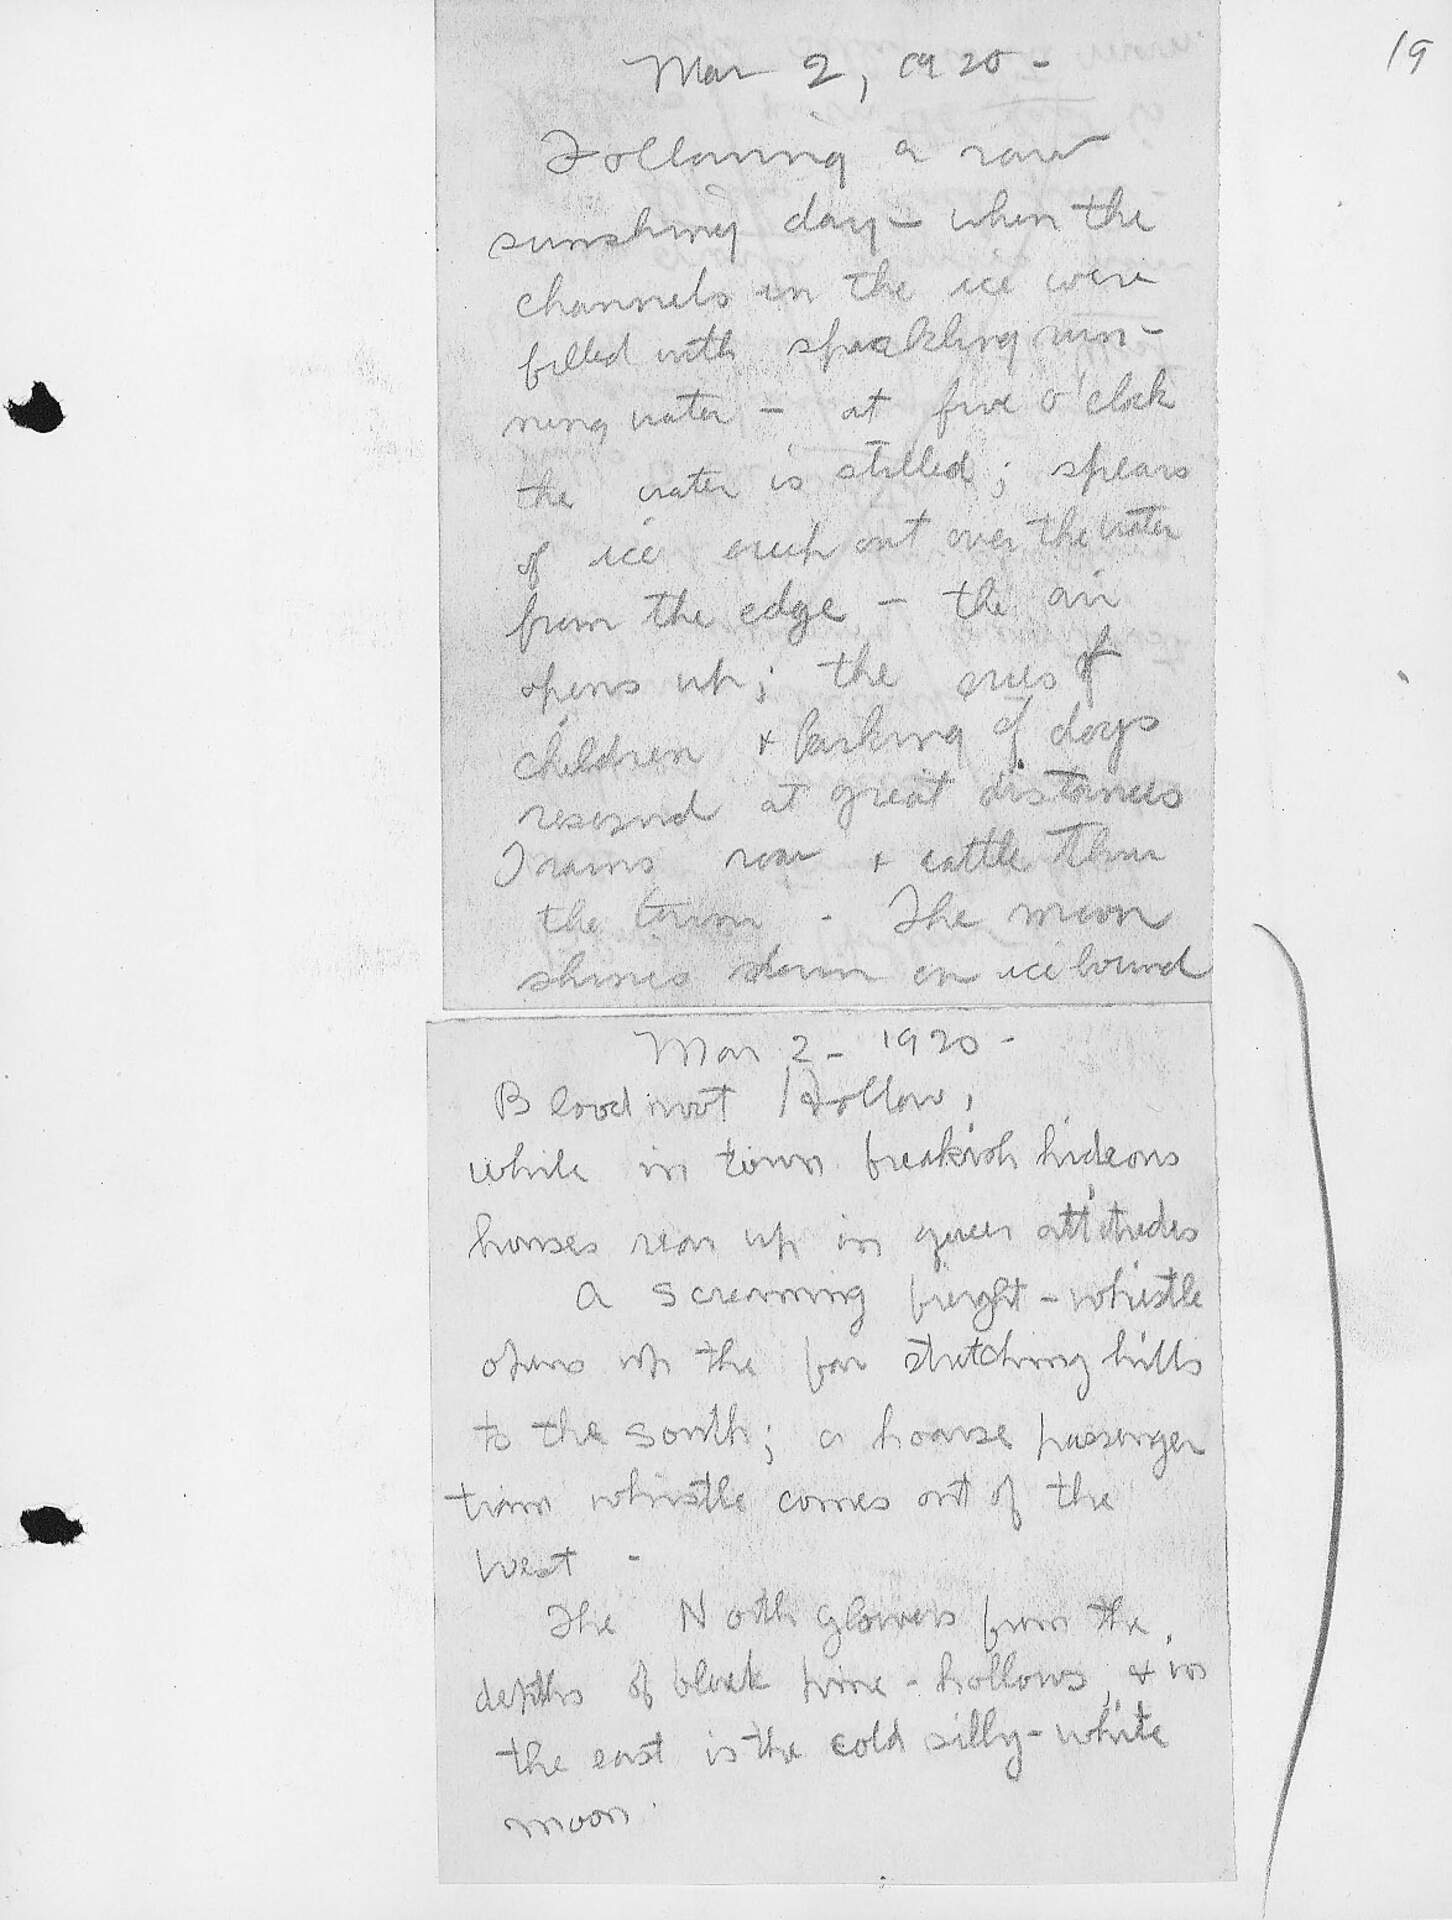 19
Mar 2, 1920 -
Following a raw
sunshiny day - when the
channels in the ice were
filled with sparkling run-
ning water - at five o'clock
the water is stilled; spears
of ice creep out over the water
from the edge - the air
opens up; the cries of
children & barking of dogs
resound at great distances
Trains roar & rattle thru
the town - The moon
shines down on icebound
Mar 2 - 1920 -
Bloodroot Hollow,
while in town freakish hideous
houses rear up in queer attitudes
A screaming freight-whistle
opens up the far stretching hills
to the south; a hoarse passenger
train whistle comes out of the
west -
The North glowers from the
depths of black pine-hollows, & in
the east is the cold silly-white
moon.